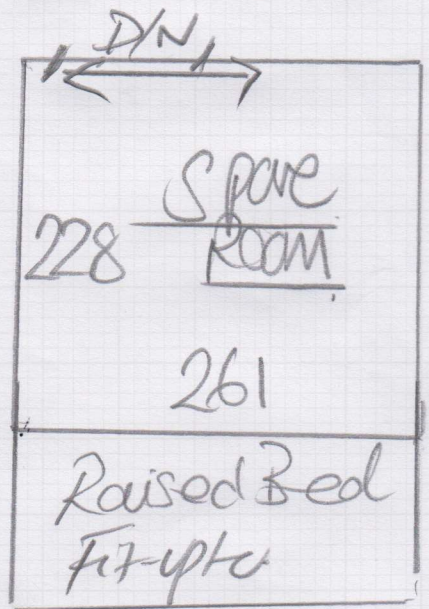 D/N
Spare
228 Room
261
Raised Bed
Fit-upto